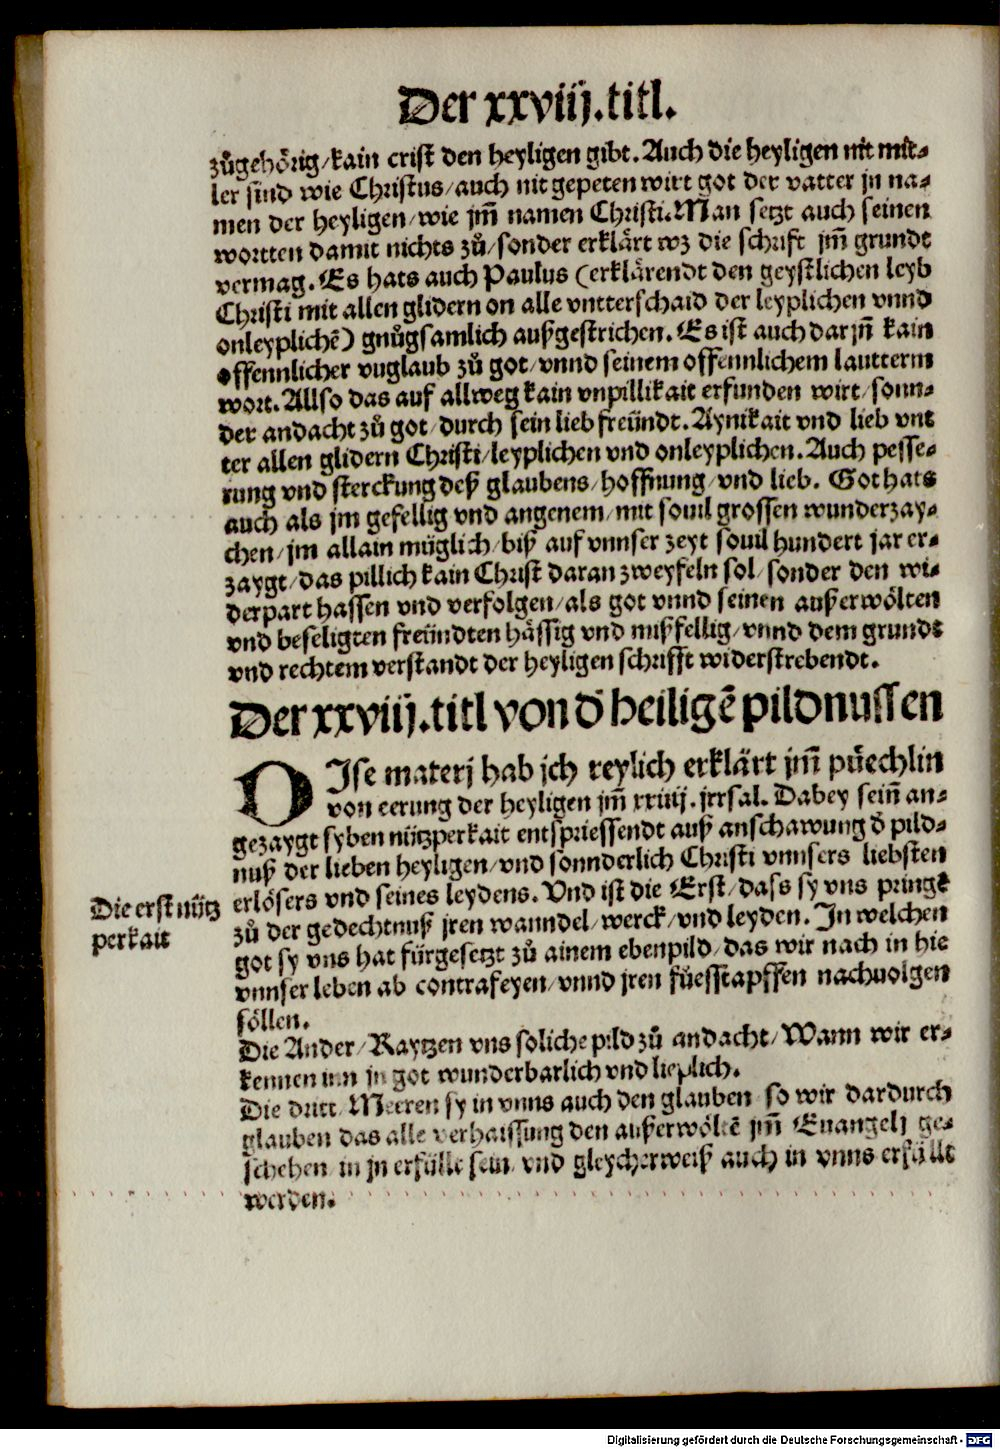 Der xxviij.titl.
zůgehörig/kain crist den heyligen gibt. Auch die heyligen nit mit-
ler sind wie Christus/auch nit gepeten wirt got der vatter jn na-
men der heyligen/wie jm̄ namen Christi. Man setzt auch seinen
wortten damit nichts zů/sonder erklärt wz die schrift jm̄ grundt
vermag. Es hats auch Paulus (erklärendt den geystlichen leyb
Christi mit allen glidern on alle vntterschaid der leyplichen vnnd
onleyplichē) gnůgsamlich außgestrichen. Es ist auch dar jn̄ kain
offennlicher vnglaub zů got/vnnd seinem offennlichem lautterm
wort. Allso das auf allweg kain vnpillikait erfunden wirt/sonn-
der andacht zů got/durch sein lieb freündt. Aynikait vnd lieb vnt
ter allen glidern Christi/leyplichen vnd onleyplichen. Auch pesse-
rung vnd sterckung deß glaubens/hoffnung/vnd lieb. Got hats
auch als jm gefellig vnd angenem/mit souil grossen wunderzay-
chen/jm allain müglich/biß auf vnnser zeyt souil hundert jar er-
zaygt/das pillich kain Christ daran zweyfeln sol/sonder den wi-
derpart hassen vnd verfolgen/als got vnnd seinen außerwölten
vnd beseligten freündten hässig vnd mißfellig/vnnd dem grundt
vnd rechtem verstandt der heyligen schrifft widerstrebendt.
Der xxviij.titl von d̄ heiligē pildnussen
DJse materj hab jch reylich erklärt jm̄ püechlin
von eerung der heyligen jm̄ xxiiij. jrrsal. Dabey sein̄ an-
gezaygt syben nützperkait entspriessendt auß anschawung d̄ pild-
nuß der lieben heyligen/vnd sonnderlich Christi vnnsers liebsten
erlösers vnd seines leydens. Vnd ist die Erst/dass sy vns pringt
Die erst nütz
perkait
zů der gedechtnuß jren wanndel/werck/vnd leyden. Jn welchen
got sy vns hat fürgesetzt zů ainem ebenpild/das wir nach in hie
vnnser leben ab contrafeyen/vnnd jren füesstapffen nachuolgen
söllen.
Die Ander/Raytzen vns soliche pild zů andacht/Wann wir er-
kennen inn jn got wunderbarlich vnd lieplich.
Die dritt/Meeren sy in vnns auch den glauben so wir dardurch
glauben das alle verhaissung den außerwöltē jm̄ Euangelj ge-
schehen in jn erfülle sein/vnd gleycherweiß auch in vnns erfüllt
werden.
Digitalisierung gefördert durch die Deutsche Forschungsgemeinschaft - DFG